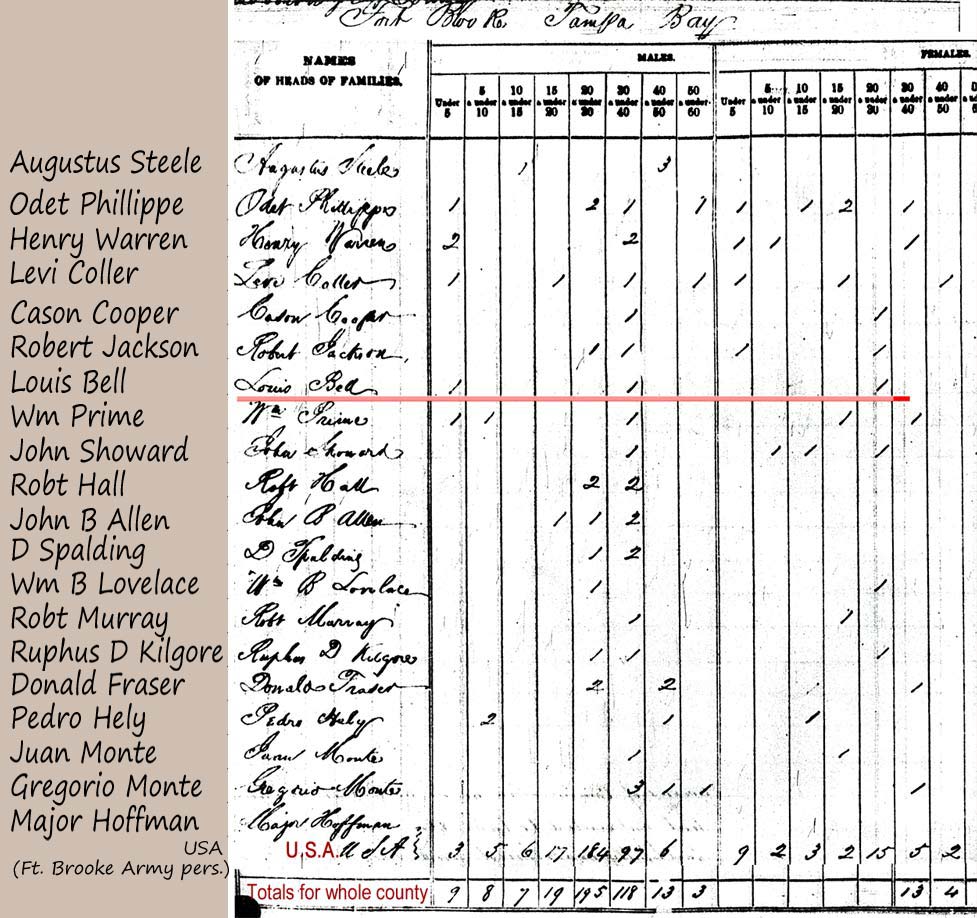 Fort Brooke Tampa Bay
NAMES OF HEADS OF FAMILIES.
MALES.
FEMALES.
Under 5
5 & under 10
10 & under 15
15 & under 20
20 & under 30
30 & under 40
40 & under 50
50 & under 60
Under 5
5 & under 10
10 & under 15
15 & under 20
20 & under 30
30 & under 40
40 & under 50
Augustus Steele Augustus Steele 1 3
Odet Phillippe Odet Phillippe 1 2 1 1 1 1 2 1
Henry Warren Henry Warren 2 2 1 1 1
Levi Coller Levi Coller 1 1 1 1 1 1 1
Cason Cooper Cason Cooper 1 1
Robert Jackson Robert Jackson 1 1 1 1
Louis Bell Louis Bell 1 1 1
Wm Prime Wm Prime 1 1 1 1 1
John Showard John Showard 1 1 1 1
Robt Hall Robt Hall 2 2
John B Allen John B Allen 1 1 2
D Spalding D Spalding 1 2
Wm B Lovelace Wm B Lovelace 1 1
Robt Murray Robt Murray 1 1
Ruphus D Kilgore Ruphus D Kilgore 1 1 1
Donald Fraser Donald Fraser 2 2 1
Pedro Hely Pedro Hely 2 1 1
Juan Monte Juan Monte 1 1
Gregorio Monte Gregorio Monte 3 1 1 1
Major Hoffman Major Hoffman
USA U.S.A. U S A 3 5 6 17 184 97 6 9 2 3 2 15 5 2
(Ft. Brooke Army pers.)
Totals for whole county 9 8 7 19 195 118 13 3 13 4